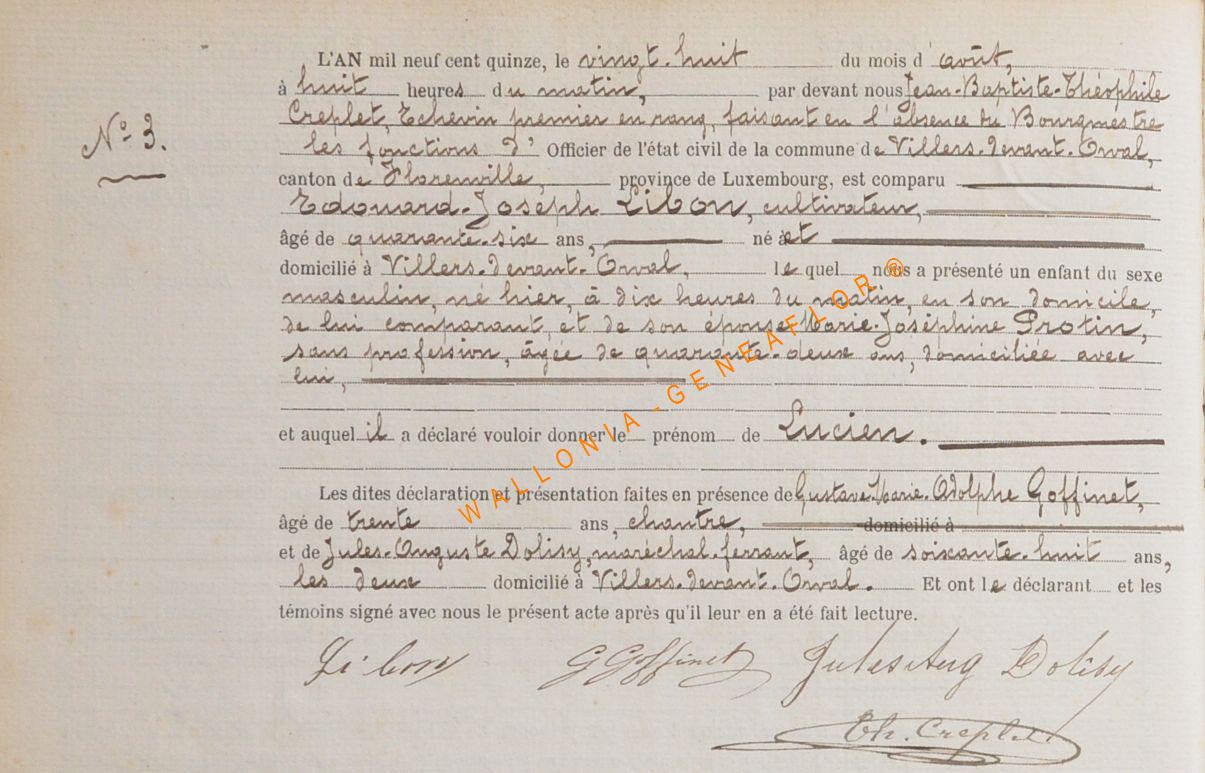 L'AN mil neuf cent quinze, le vingt-huit du mois d'août,
à huit heures du matin, par devant nous Jean-Baptiste-Théophile
N° 3.
Creplet, Echevin premier en rang, faisant en l'absence du Bourgmestre
les fonctions d' Officier de l'état civil de la commune de Villers-devant-Orval,
canton de Florenville, province de Luxembourg, est comparu
Edouard-Joseph Libon, cultivateur,
âgé de quarante-six ans, né à et
domicilié à Villers-devant-Orval, lequel nous a présenté un enfant du sexe
masculin, né hier, à dix heures du matin, en son domicile,
de lui comparant, et de son épouse Marie-Joséphine Protin,
sans profession, âgée de quarante-deux ans, domiciliée avec
lui,
et auquel il a déclaré vouloir donner le prénom de Lucien.
Les dites déclaration et présentation faites en présence de Gustave-Marie-Adolphe Goffinet,
âgé de trente ans, chantre, domicilié à
et de Jules-Auguste Dolisy, maréchal-ferrant, âgé de soixante-huit ans,
les deux domicilié à Villers-devant-Orval. Et ont le déclarant et les
témoins signé avec nous le présent acte après qu'il leur en a été fait lecture.
Libon G Goffinet Jules Aug Dolisy
Th. Creplet
WALLONIA-GENEAFLOR ®